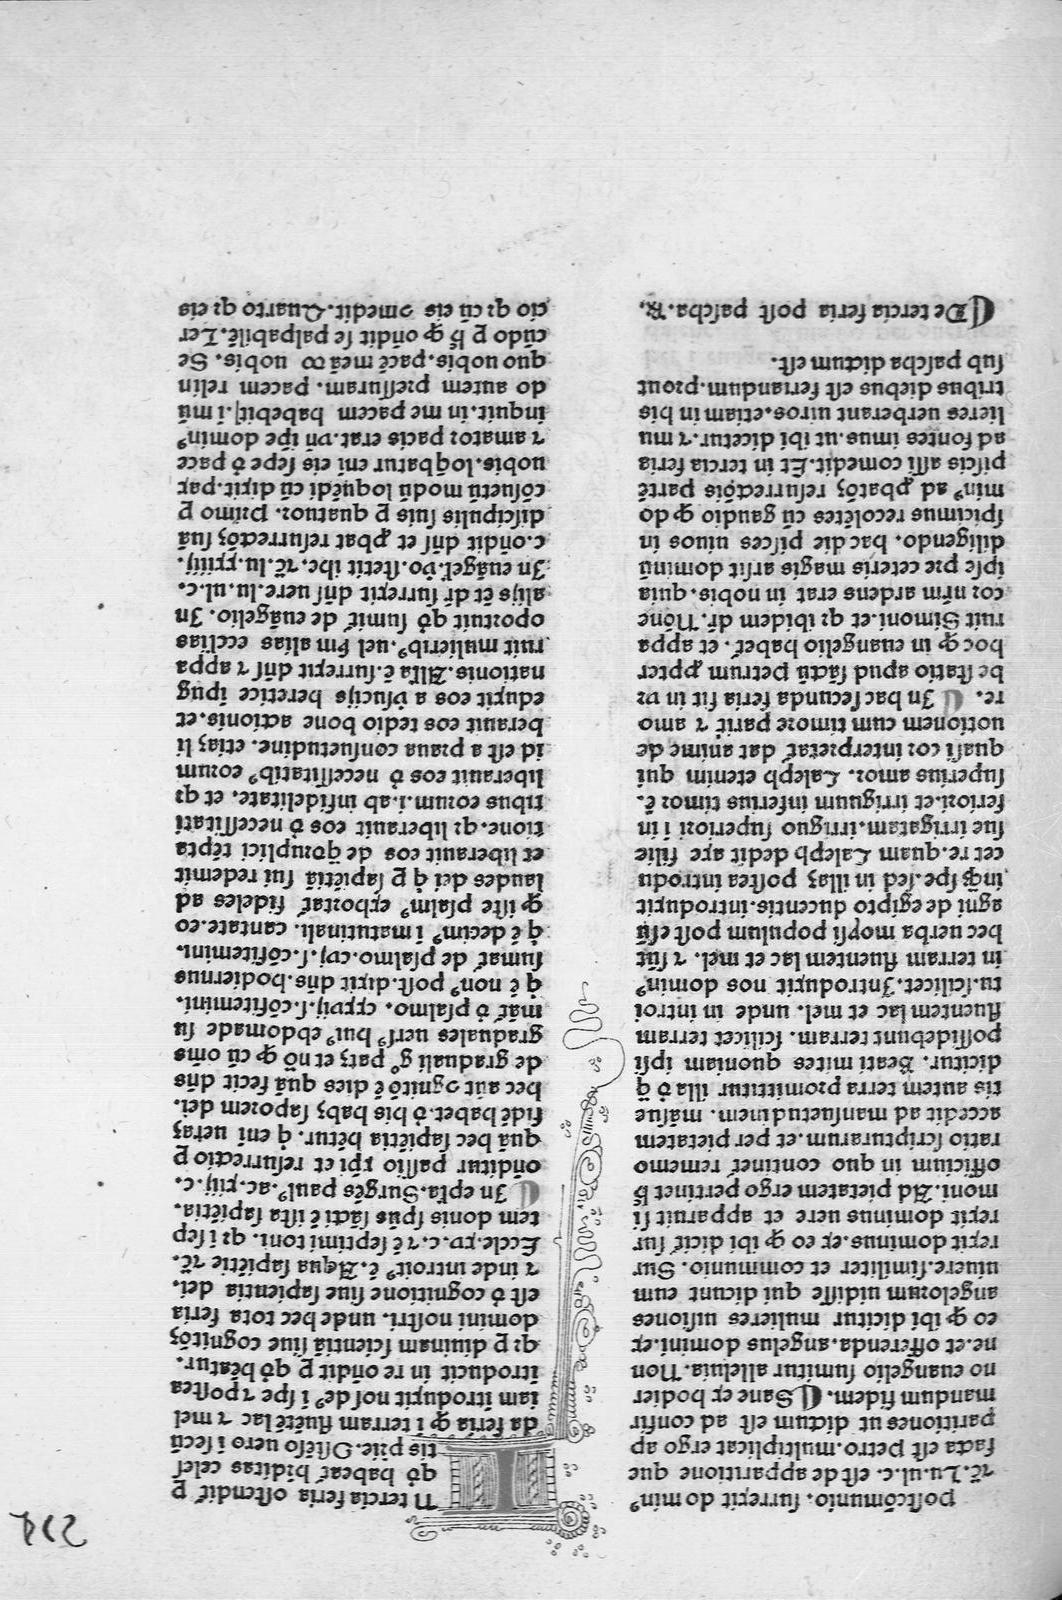 poſtcōmunio. ſurrexit do minꝰ
⁊c̄. Lu.ul.c. eſt de apparitione que
facta eſt petro. multiplicat ergo ap
paritiones ut dictum eſt ad confir
mandum fidem. ¶ Sane ex hodier
no euangelio ſumitur alleluia. Non
ne. et offerenda. angelus domini. ex
eo ꝙ ibi dicitur mulieres uiſiones
angelorum uidiſſe qui dicunt eum
uiuere. ſimiliter et communio. Sur
rexit dominus. ex eo ꝙ ibi dicit̄ ſur
rexit dominus uere et apparuit ſi
moni. Ad pietatem ergo pertinet h̄
officium in quo continet̄ rememo
ratio ſcripturarum. et per pietatem
accedit̄ ad manſuetudinem. māſue
tis autem terra promittitur illa ō q̄
dicitur. Beati mites quoniam ipſi
poſſidebunt terram. ſcilicet terram
fluentem lac et mel. unde in introi
tu. ſcilicet. Introduxit nos dominꝰ
in terram fluentem lac et mel. ⁊ ſūt
hec uerba moyſi populum poſt eſū
agni de egipto ducentis. introduxit
inq̄ ſpe. ſed in illaʒ poſtea introdu
cet re. quam Caleph dedit axe filie
ſue irrigatam. irriguo ſuperiori ⁊ in
feriori. et irriguum inferius timor ē.
ſuperius amor. Caleph etenim qui
quaſi cor interpretat̄ dat anime de
uotionem cum timore parit ⁊ amo
re. ¶ In hac ſecunda feria fit in ur
be ſtatio apud ſāctū petrum ꝓpter
hoc ꝙ in euangelio habet̄. et appa
ruit Simoni. et qꝛ ibidem dr̄. Nōne
cor nr̄m ardens erat in nobis. quia
ipſe pre ceteris magis arſit dominū
diligendo. hac die piſces uiuos in
ſpicimus recolētes cū gaudio ꝙ do
minꝰ ad ꝓbatōʒ reſurrectōis partē
piſcis aſſi comedit. Et in tercia feria
ad fontes imus. ut ibi dicetur. ⁊ mu
lieres uerberant uiros. etiam in his
tribus diebus eſt feriandum. prout
ſub paſcha dictum eſt.
¶ De tercia feria poſt paſcha. R̄.
IN tercia feria oſtendit̄ p̄
qđ habeat̄ h̓iditas celeſ
tis pr̄ie. Oſtēſo uero i ſecū
da feria ꝙ i terram fluētē lac ⁊ mel
iam ītroduxit noſ deꝰ i ſpe ⁊ poſtea
ītroducit in re on̄dit p̄ qđ hēatur.
qꝛ p̄ diuinam ſcientiā ſiue cognitōʒ
domini noſtri. unde hec tota feria
eſt ō cognitione ſiue ſapientia dei.
⁊ inde introitꝰ ē. Aqua ſapiētie ⁊c̄.
Eccle.xv.c. ⁊ ē ſeptimi toni. qꝛ i ſep
tem donis ſpūs ſācti ē iſta ſapiētia.
¶ In epl̄a. Surgēs paulꝰ. ac.xiij.c.
on̄ditur paſſio xp̄i et reſurrectio p̄
quā hec ſapiētia hētur. q̇ eni ueraʒ
fidē habet. ō his habʒ ſaporem dei.
hec aūt ꝯgnitō ē dies quā fecit dn̄s
de graduali gͦ pateʒ et nō ꝙ cū om̄s
graduales uerſꝰ huiꝰ ebdomade ſu
māt̄ ō pſalmo. cxvij. ſ. cōfitemini.
q̇ ē nonꝰ poſt. dixit dn̄s. hodiernus
ſumat̄ de pſalmo. cvj. ſ. cōfitemini.
q̇ ē decimꝰ i matutinali. cantate. eo
ꝙ iſte pſalmꝰ exhortat̄ fideles ad
laudes dei q̇ p̄ ſapiētiā ſui redemit
et liberauit eos de q̈druplici tēpta
tione. qꝛ liberauit eos ō neceſſitati
tibus eorum. i. ab infidelitate. et qꝛ
liberauit eos ō neceſſitatibꝰ eorum
id eſt a praua conſuetudine. etiaʒ li
berauit eos tedio bone actionis. et
eduxit eos a v̓ſucijs heretice ipug
nationis. Alla ē. ſurrexit dn̄ſ ⁊ appa
ruit mulieribꝰ. uel ẜm alias ecclias
oportuit qđ ſumit̄ de euāgelio. In
alijs ēt dr̄ ſurrexit dn̄ſ uere. lu.ul.c.
In euāgel̓.ōo. ſtetit ihc. ⁊c̄. lu. xxiiij.
c. on̄dit dn̄ſ et ꝓbat reſurrectōʒ ſuā
diſcipulis ſuis p̄ quatuor. Primo p̄
cōſuetū modū loquēdi cū dixit. pax
uobis. loq̄batur eni eis ſepe ō pace
⁊ amator pacis erat. vn̄ ipe dominꝰ
inquit. in me pacem habebit̄. i mū
do autem preſſuram. pacem relin
quo uobis. pacē meā do uobis. Se
cūdo p̄ h̄ ꝙ on̄dit ſe palpabilē. Ter
cio qꝛ cū eis ꝯmedit. Quarto qꝛ eis